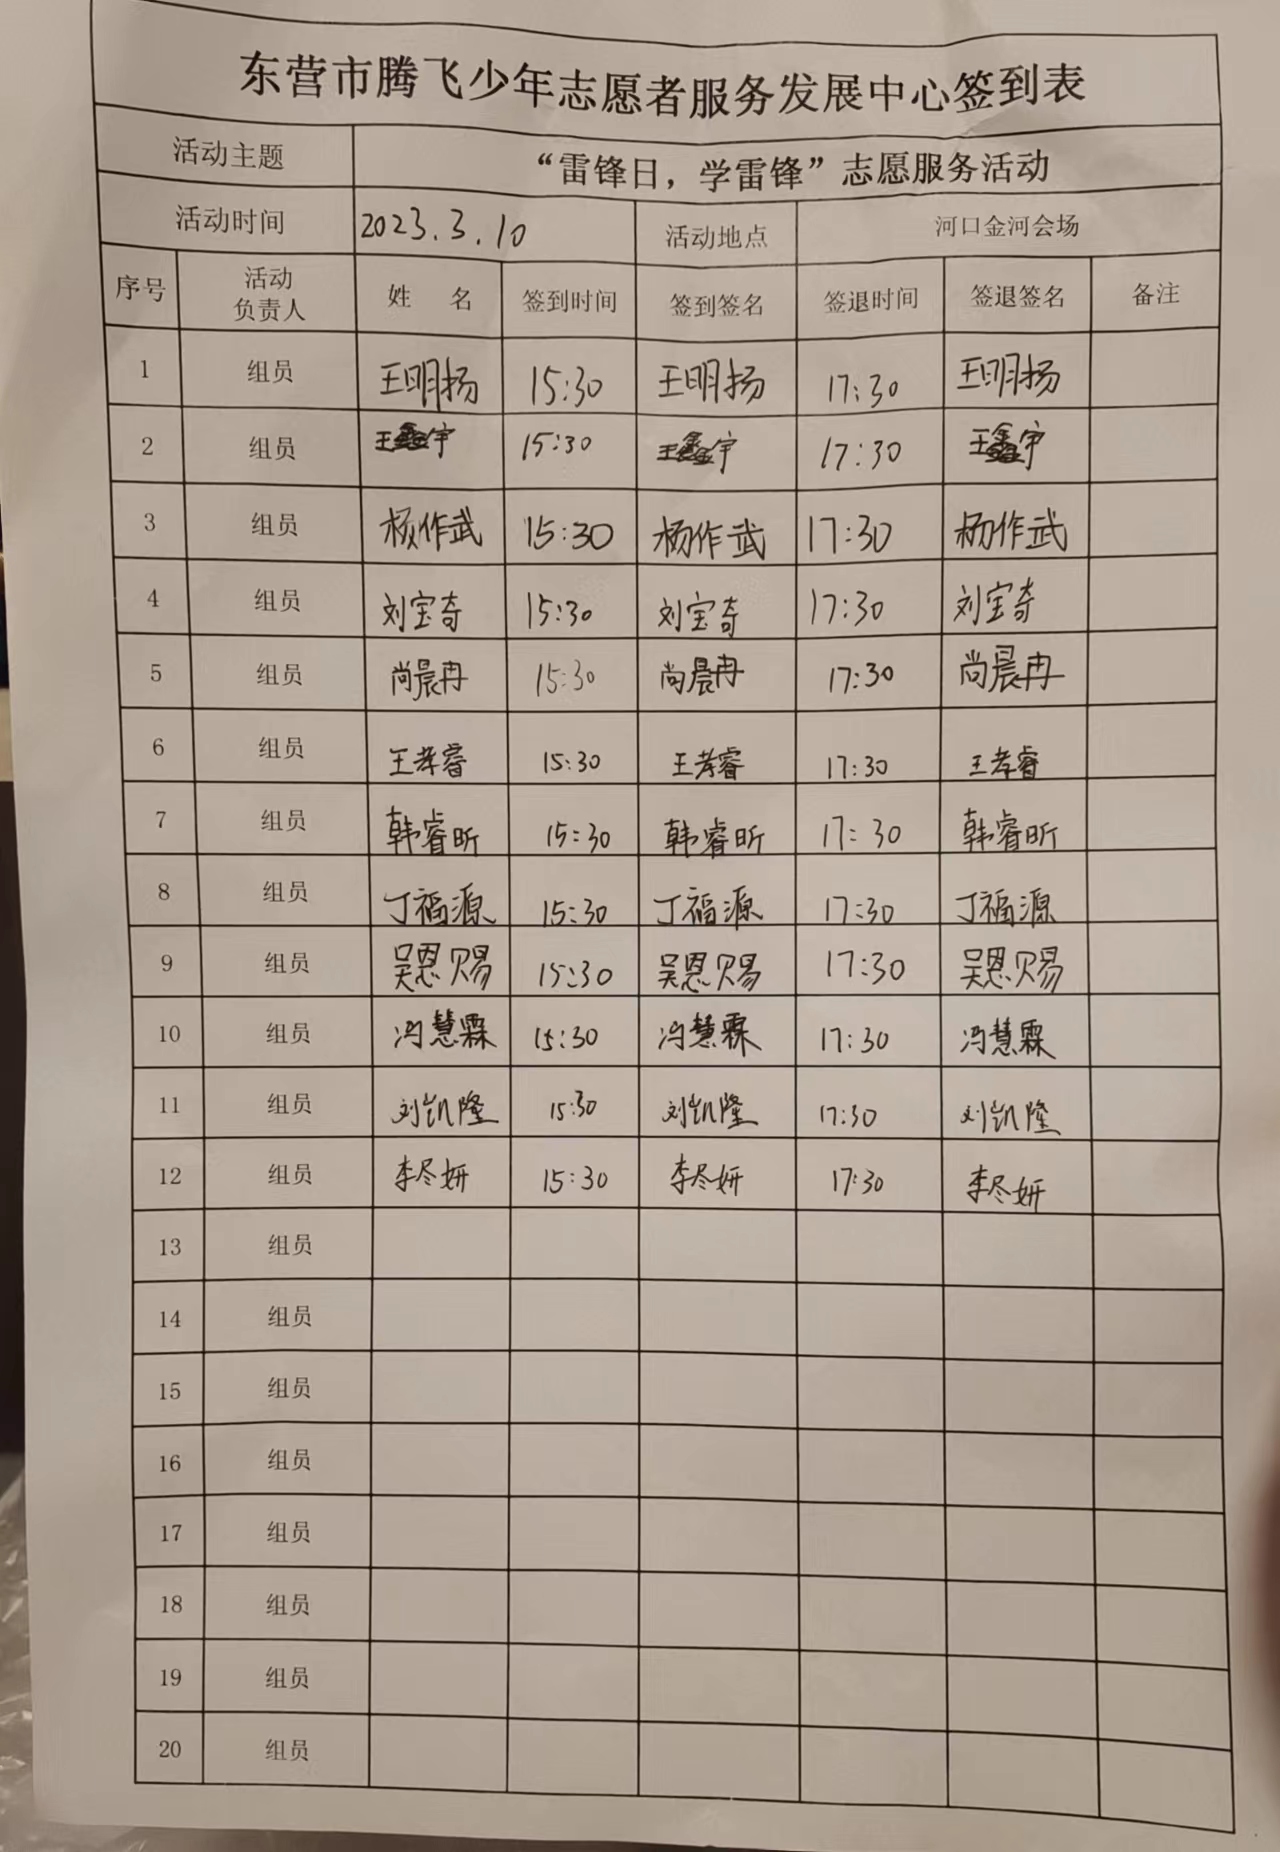 东营市腾飞少年志愿者服务发展中心签到表
活动主题 “雷锋日，学雷锋”志愿服务活动
活动时间 2023.3.10 活动地点 河口金河会场
序号 活动负责人 姓 名 签到时间 签到签名 签退时间 签退签名 备注
1 组员 王明扬 15:30 王明扬 17:30 王明扬
2 组员 王鑫宇 15:30 王鑫宇 17:30 王鑫宇
3 组员 杨作武 15:30 杨作武 17:30 杨作武
4 组员 刘宝奇 15:30 刘宝奇 17:30 刘宝奇
5 组员 尚晨冉 15:30 尚晨冉 17:30 尚晨冉
6 组员 王孝睿 15:30 王孝睿 17:30 王孝睿
7 组员 韩睿昕 15:30 韩睿昕 17:30 韩睿昕
8 组员 丁福源 15:30 丁福源 17:30 丁福源
9 组员 吴恩赐 15:30 吴恩赐 17:30 吴恩赐
10 组员 冯慧霖 15:30 冯慧霖 17:30 冯慧霖
11 组员 刘凯隆 15:30 刘凯隆 17:30 刘凯隆
12 组员 李尽妍 15:30 李尽妍 17:30 李尽妍
13 组员
14 组员
15 组员
16 组员
17 组员
18 组员
19 组员
20 组员